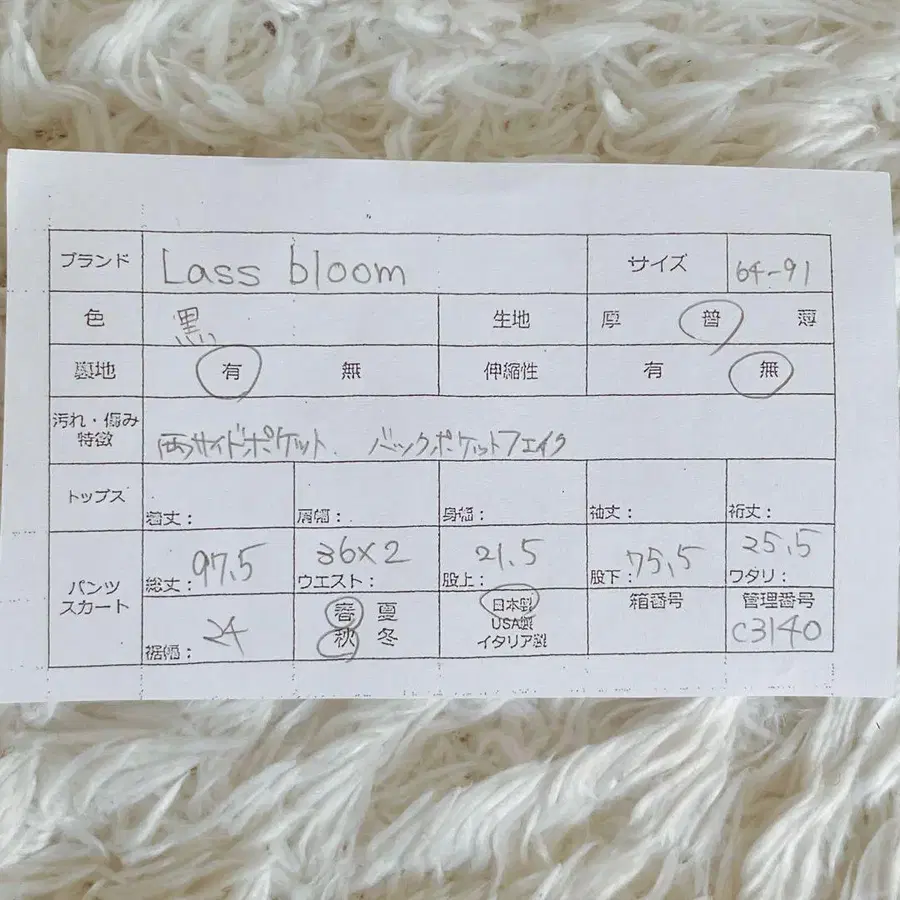 ブランド Lass bloom サイズ 64-91
色 黒 生地 厚 普 薄
裏地 有 無 伸縮性 有 無
汚れ・傷み
特徴 両サイドポケット、バックポケットフェイク
トップス 着丈： 肩幅： 身幅： 袖丈： 裄丈：
パンツ
スカート
総丈： 97.5 ウエスト： 36×2 股上： 21.5 股下： 75.5 ワタリ： 25.5
裾幅： 24
春 夏
秋 冬
日本製
USA製
イタリア製
箱番号
管理番号
C3140